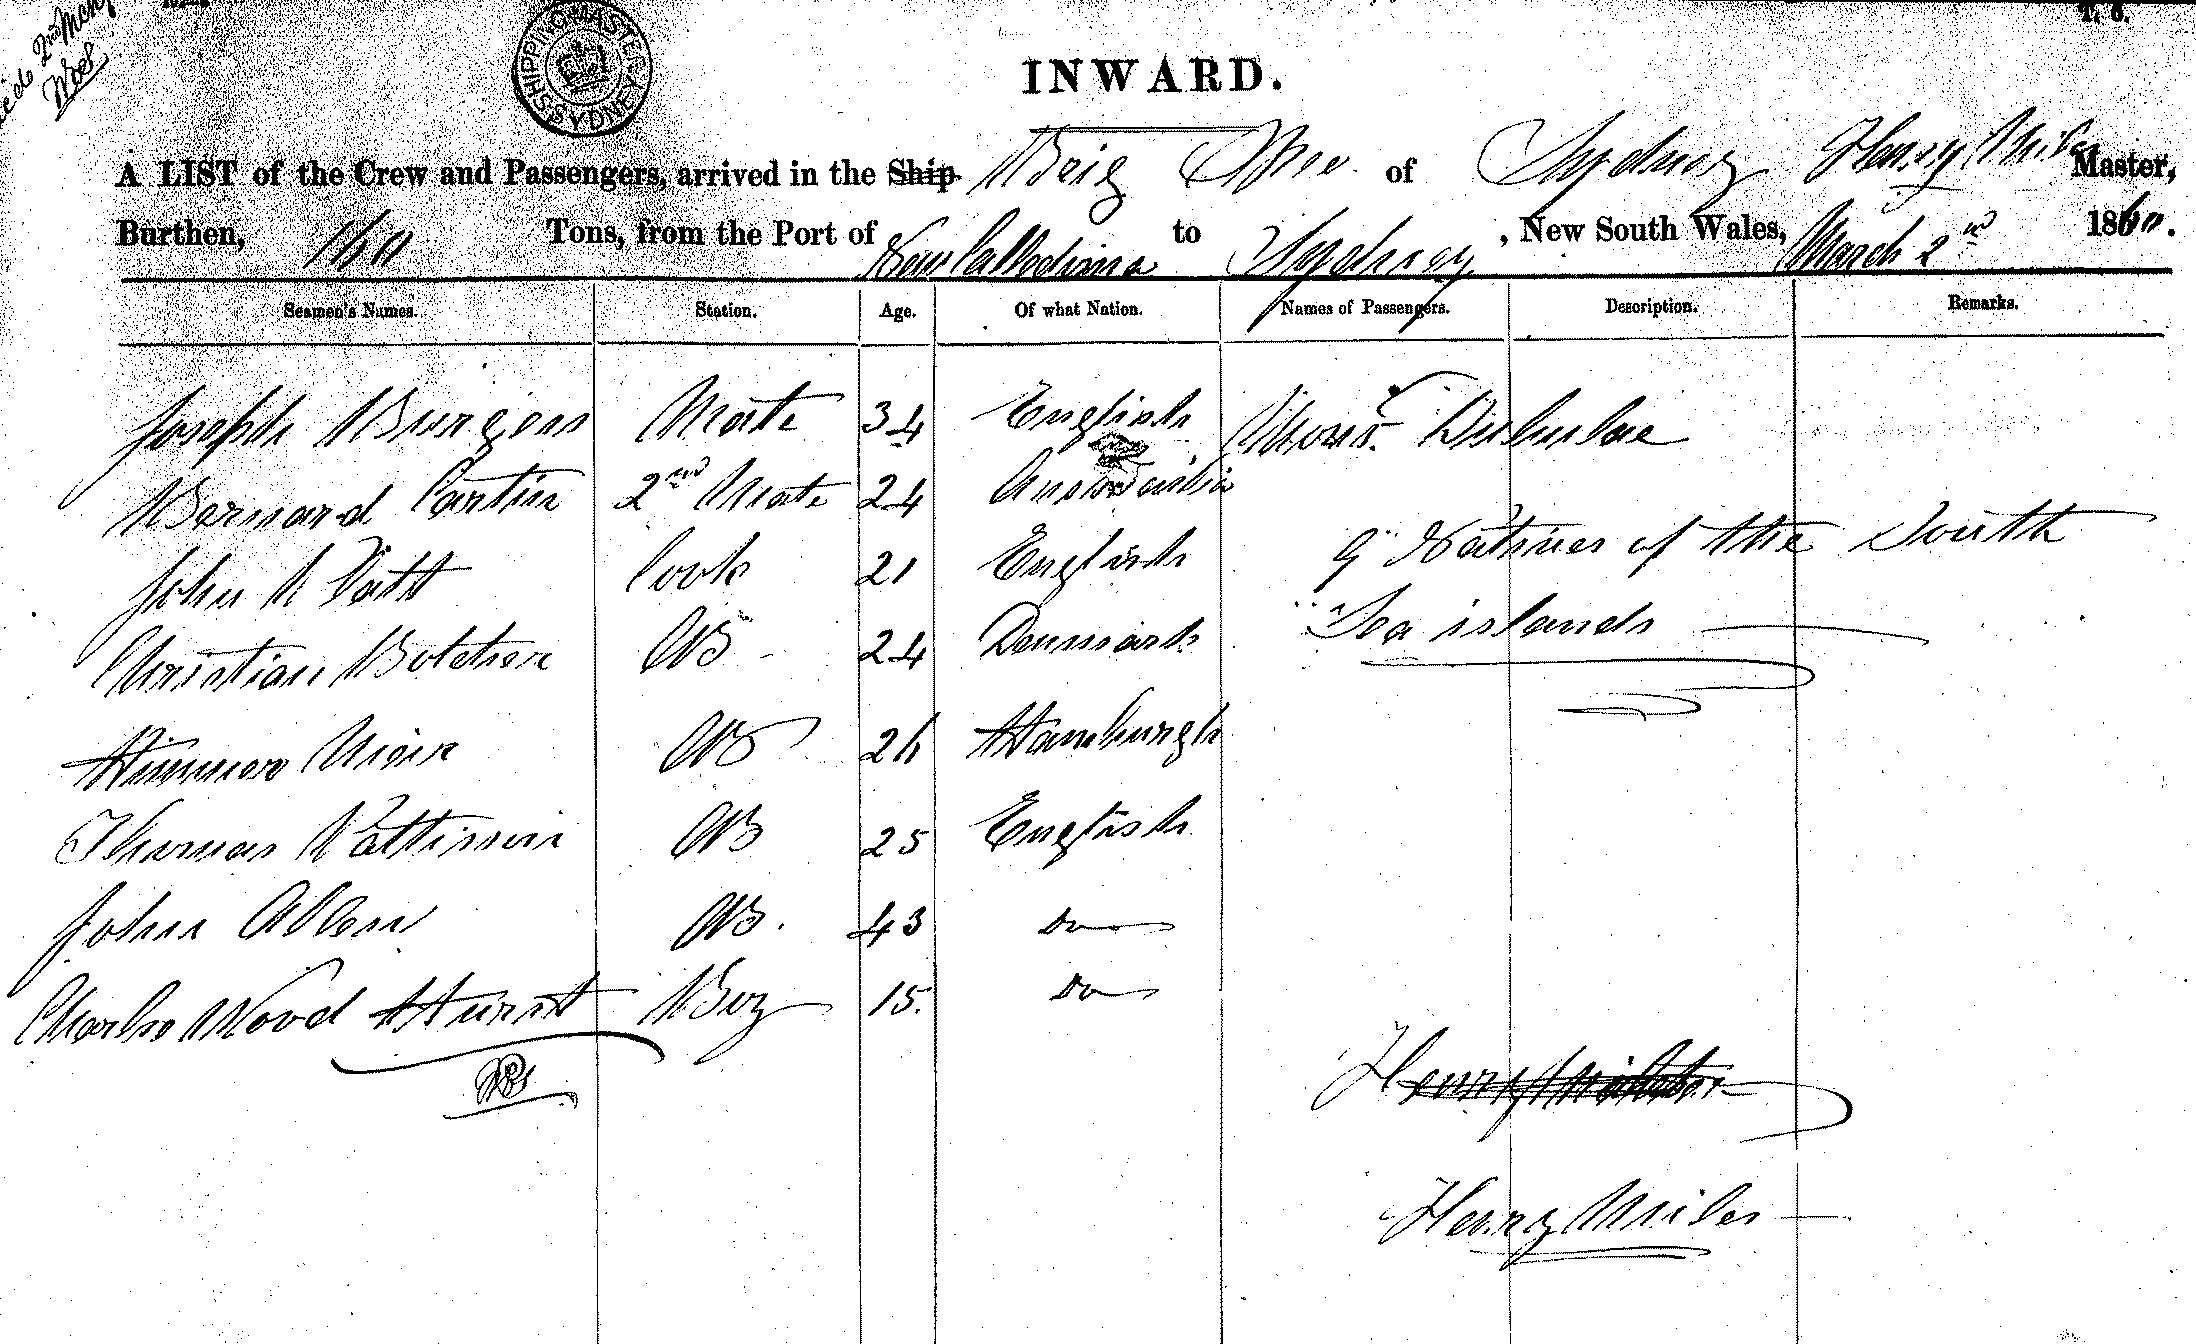 2nd
SHIPPING MASTER SYDNEY
INWARD.
A LIST of the Crew and Passengers, arrived in the Ship Brig Spec of Sydney Henry Miles Master,
Burthen, Tons, from the Port of New Calledonia to Sydney, New South Wales, March 2nd 1860.
Seamen's Names. Station. Age. Of what Nation. Names of Passengers. Description. Remarks.
Joseph Burgess Mate 34 English Monsr.
Bernard 2nd Mate 24
9 Natives of the South
John Cook 21 English
Sea islands
Christian Botcher AB 24 Denmark
AB Hamburgh
Thomas Pattison AB 25 English
John Allen AB. 43 Do
Charles Wood Hurst Boy 15. Do
Henry
Henry Miles